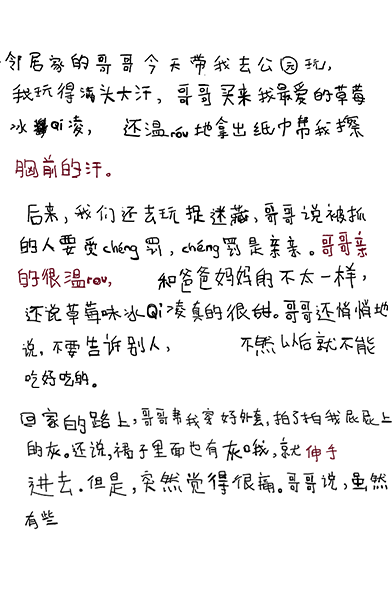 邻居家的哥哥今天带我去公园玩,
我玩得满头大汗,哥哥买来我最爱的草莓
冰Qi凌,还温róu地拿出纸巾帮我擦
胸前的汗。
后来,我们还去玩捉迷藏,哥哥说被抓
的人要受chéng罚,chéng罚是亲亲。哥哥亲
的很温rou,和爸爸妈妈的不太一样,
还说草莓味冰Qi凌真的很甜。哥哥还悄悄地
说,不要告诉别人,不然以后就不能
吃好吃的。
回家的路上,哥哥帮我穿好外套,拍了拍我屁屁上
的灰。还说,裙子里面也有灰哦,就伸手
进去.但是,突然觉得很痛。哥哥说,虽然
有些